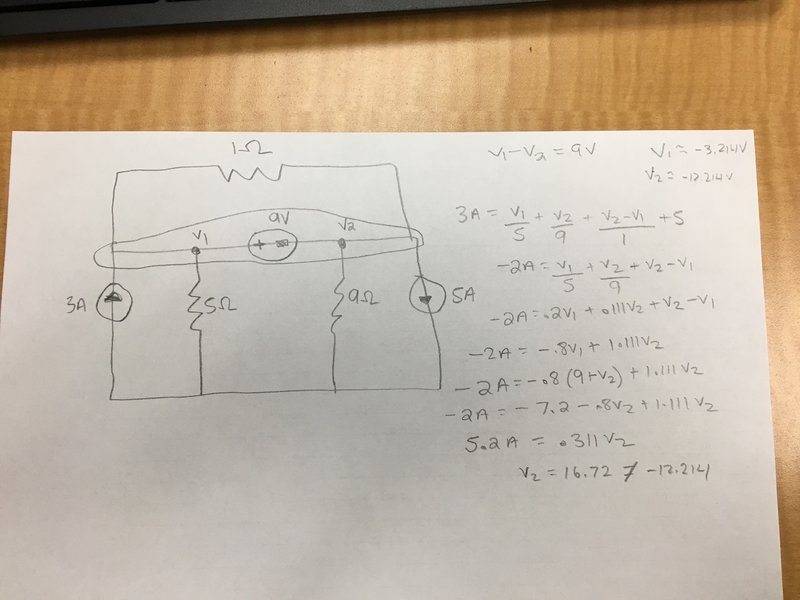 1Ω
V1 9V V2
+ -
3A 5Ω 9Ω 5A
V1 - V2 = 9V
V1 = -3.214V
V2 = -12.214V
3A = V1/5 + V2/9 + V2-V1/1 + 5
-2A = V1/5 + V2/9 + V2 - V1
-2A = .2V1 + .111V2 + V2 - V1
-2A = -.8V1 + 1.111V2
-2A = -.8(9+V2) + 1.111V2
-2A = -7.2 - .8V2 + 1.111V2
5.2A = .311V2
V2 = 16.72 ≠ -12.214